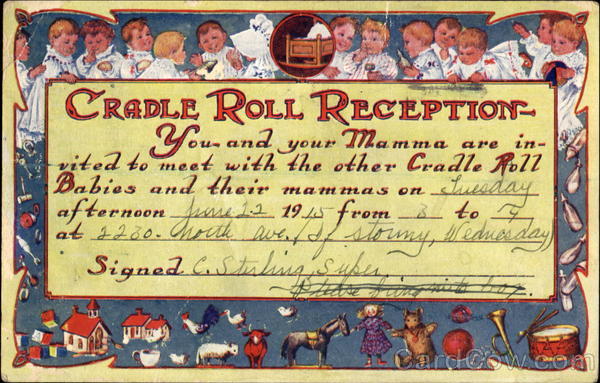 CRADLE ROLL RECEPTION
You and your Mamma are in-
vited to meet with the other Cradle Roll
Babies and their mammas on Tuesday
afternoon June 22 1915 from 3 to
at 2230. North Ave. (If stormy, Wednesday)
Signed C. Sterling, Super.
Please bring mite box.
CardCow.com